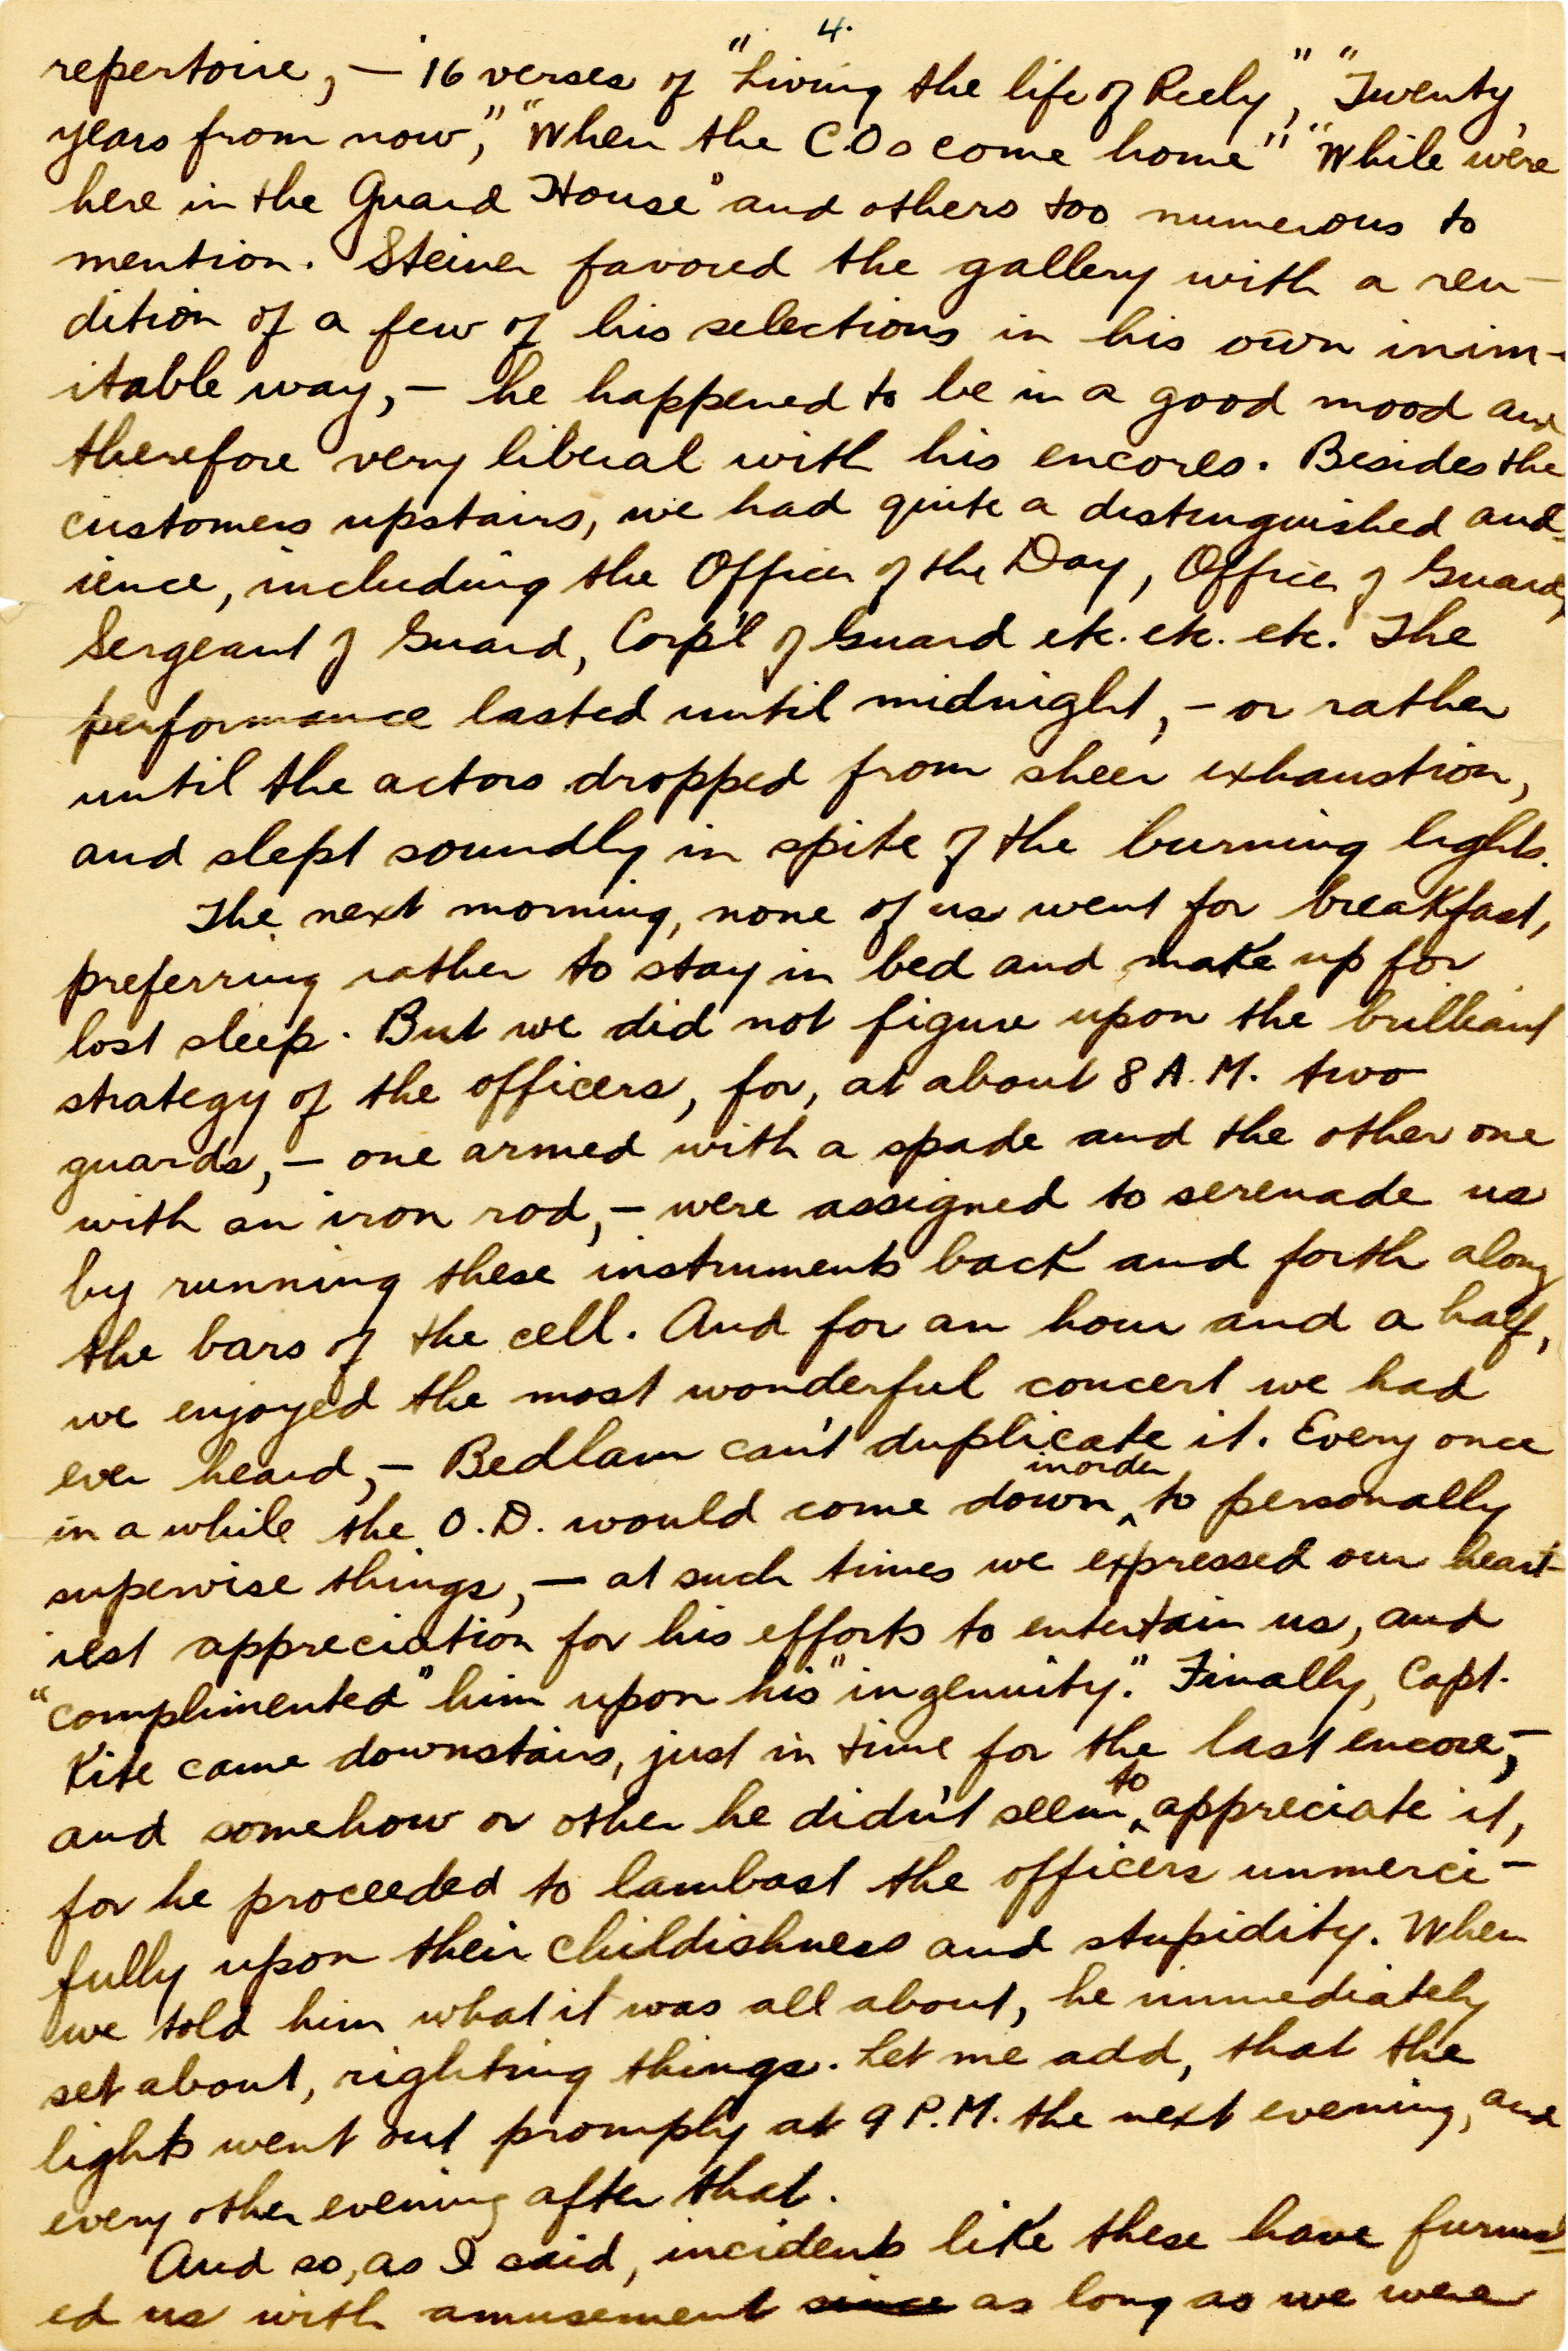 4.
repertoire, — 16 verses of "Living the life of Reely", "Twenty
years from now," "When the C.Os come home" "While we're
here in the Guard House" and others too numerous to
mention. Steiner favored the gallery with a ren-
dition of a few of his selections in his own inim-
itable way, — he happened to be in a good mood and
therefore very liberal with his encores. Besides the
customers upstairs, we had quite a distinguished aud-
ience, including the Officer of the Day, Officer of Guard,
Sergeant of Guard, Corp'l of Guard etc. etc. etc. The
performance lasted until midnight, — or rather
until the actors dropped from sheer exhaustion,
and slept soundly in spite of the burning lights.
The next morning, none of us went for breakfast,
preferring rather to stay in bed and make up for
lost sleep. But we did not figure upon the brilliant
strategy of the officers, for, at about 8 A.M. two
guards, — one armed with a spade and the other one
with an iron rod, — were assigned to serenade us
by running these instruments back and forth along
the bars of the cell. And for an hour and a half,
we enjoyed the most wonderful concert we had
ever heard, — Bedlam can't duplicate it. Every once
in a while the O.D. would come down in order to personally
supervise things, — at such times we expressed our heart-
iest appreciation for his efforts to entertain us, and
"complimented" him upon his "ingenuity." Finally, Capt.
Kite came downstairs, just in time for the last encore, —
and somehow or other he didn't seem to appreciate it,
for he proceeded to lambast the officers unmerci-
fully upon their childishness and stupidity. When
we told him what it was all about, he immediately
set about, righting things. Let me add, that the
lights went out promply at 9 P.M. the next evening, and
every other evening after that.
And so, as I said, incidents like these have furnish-
ed us with amusement since as long as we were